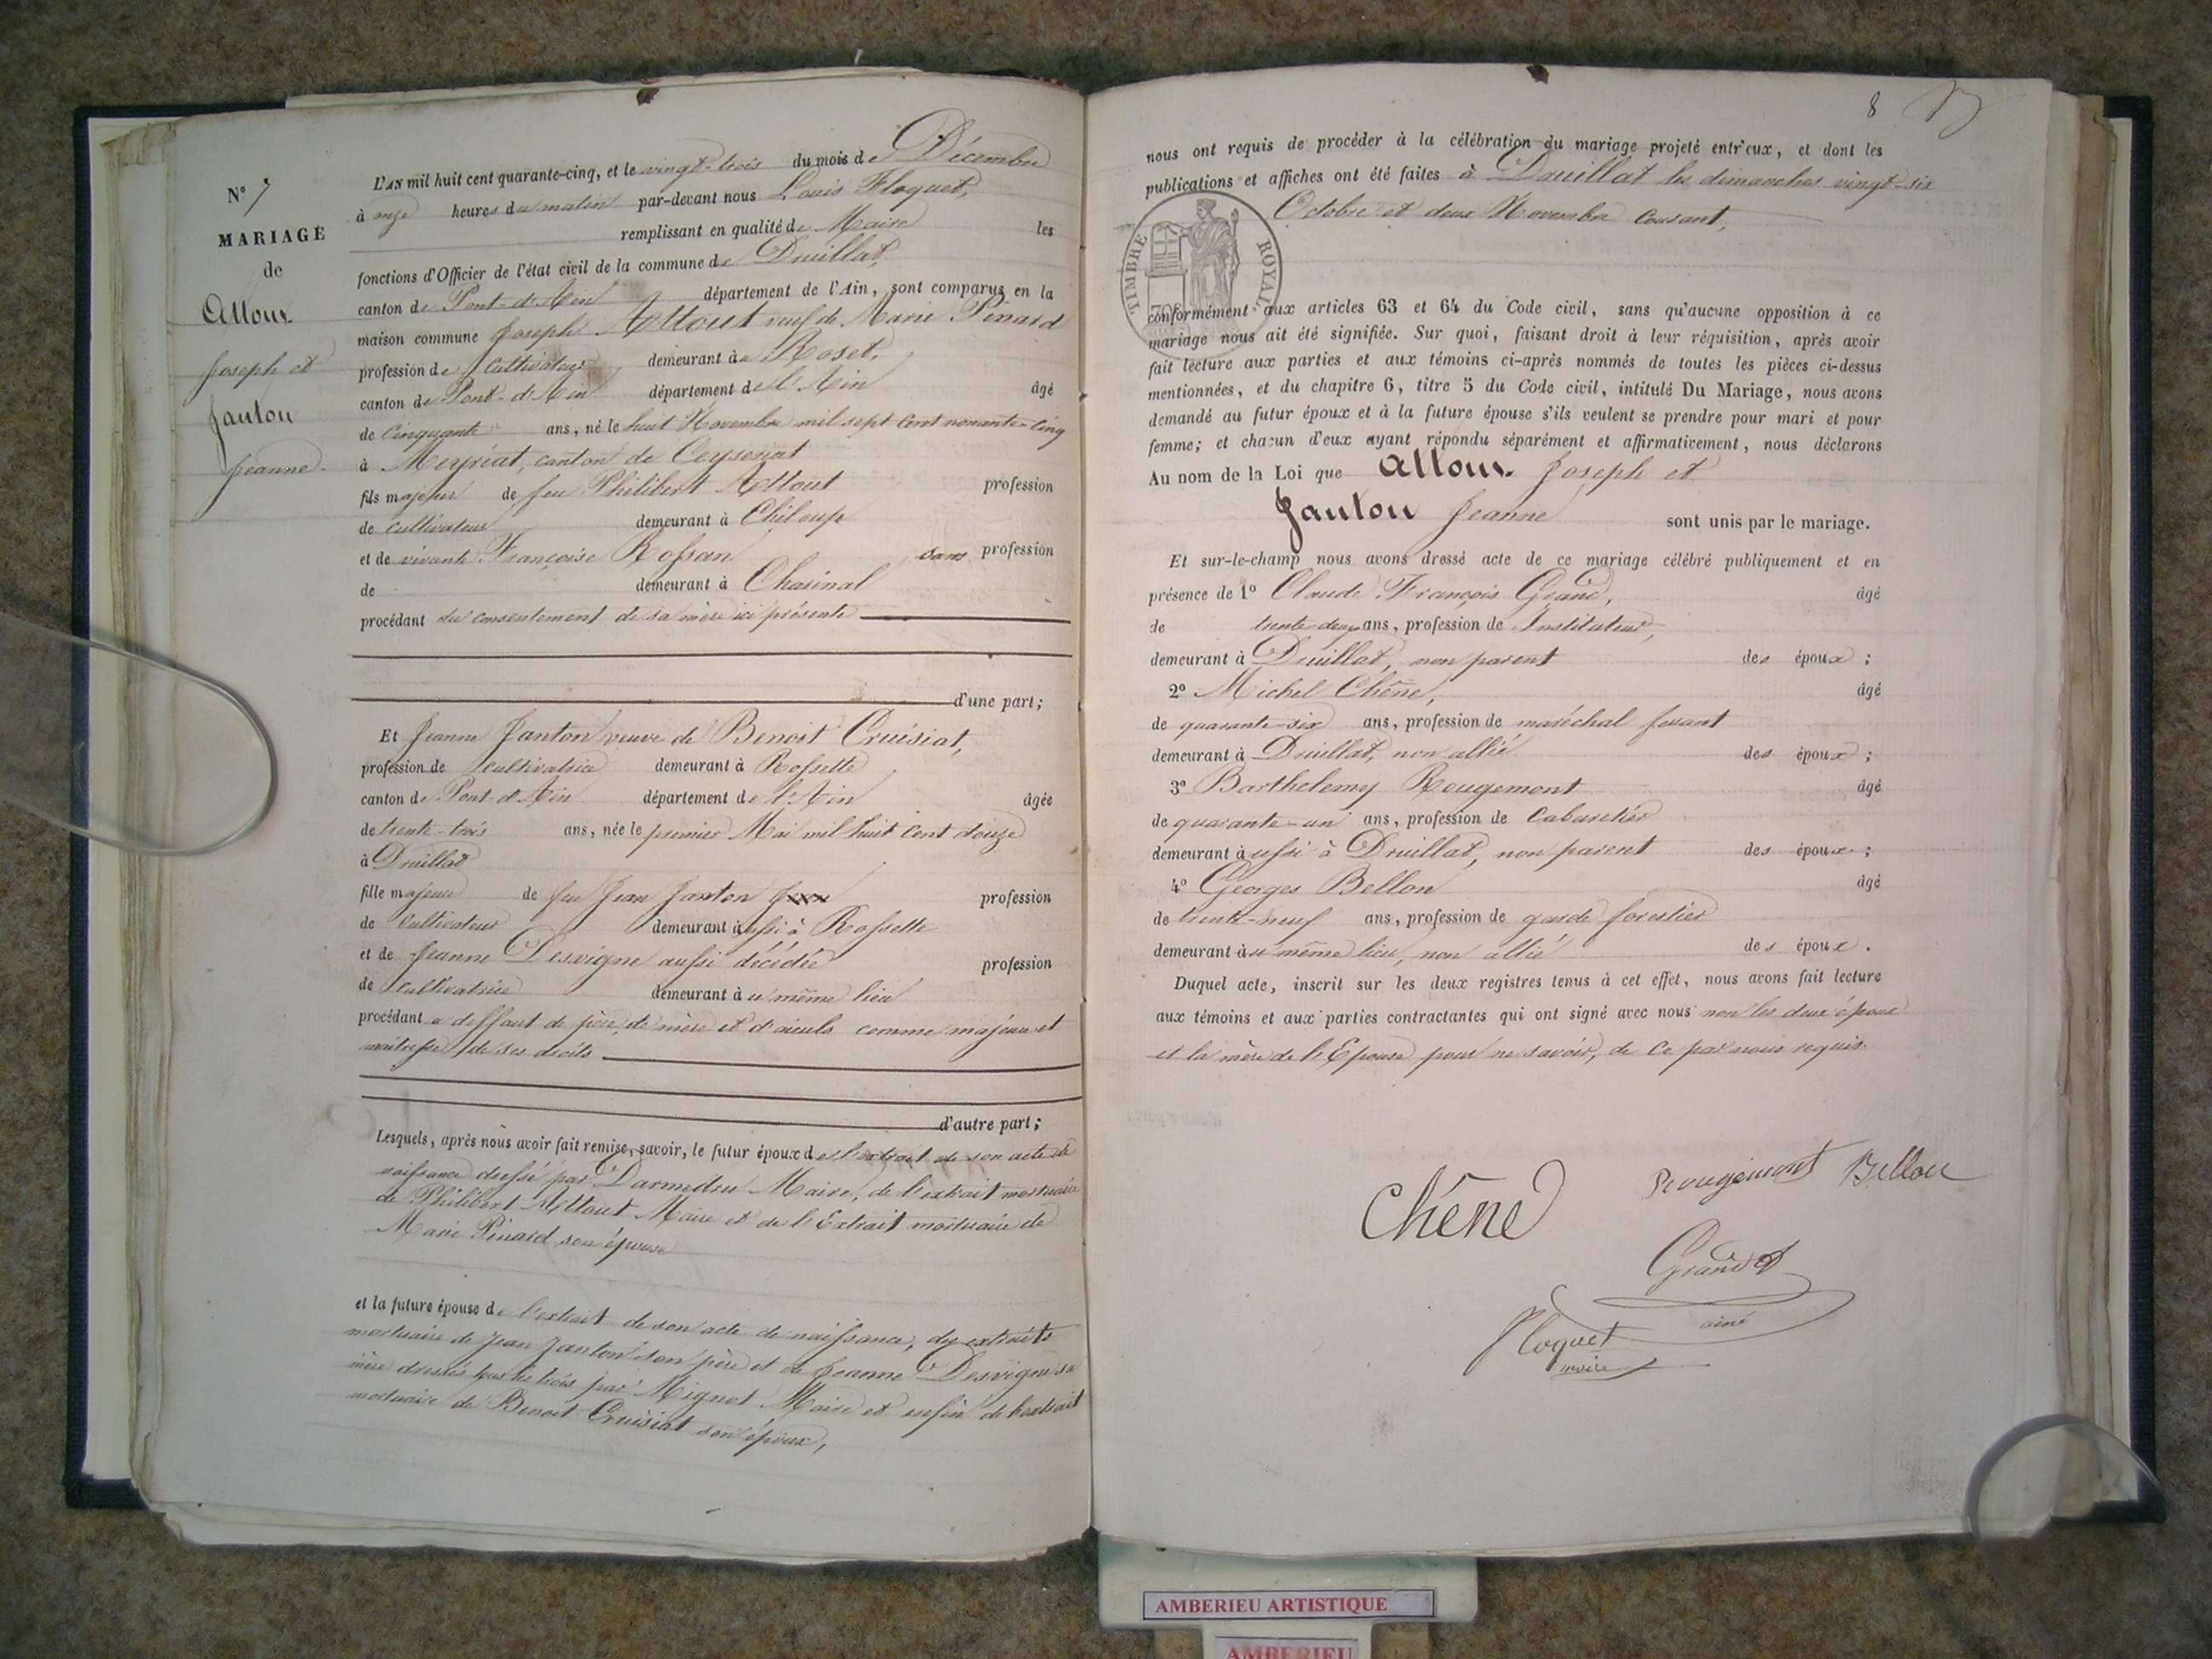 N° 7
MARIAGE
de
Alloux
Joseph et
Janton
Jeanne
L'AN mil huit cent quarante-cinq, et le vingt-trois du mois de Décembre
à onze heures du matin par-devant nous Louis Floquet,
remplissant en qualité de Maire les
fonctions d'Officier de l'état civil de la commune de Druillat,
canton de Pont-d'Ain département de l'Ain, sont comparus en la
maison commune Joseph Attout veuf de Marie Pinard
profession de Cultivateur demeurant à Roset,
canton de Pont-d'Ain département de l'Ain âgé
de Cinquante ans, né le huit Novembre mil sept cent nonante-cinq
à Meyriat, canton de Ceyseriat
fils majeur de feu Philibert Attout profession
de cultivateur demeurant à Chiloup
et de vivante Françoise Rossan sans profession
de demeurant à Charinal
procédant du consentement de sa mère ici présente
d'une part;
Et Jeanne Janton veuve de Benoit Cruisiat,
profession de cultivatrice demeurant à Rossette
canton de Pont-d'Ain département de l'Ain âgée
de trente-trois ans, née le premier Mai mil huit cent douze
à Druillat
fille majeure de feu Jean Janton profession
de Cultivateur demeurant aussi à Rossette
et de Jeanne Desvigne aussi décédée profession
de cultivatrice demeurant au même lieu
procédant a deffaut de père, de mère et d'aieuls comme majeure et
maitresse de ses droits
d'autre part;
Lesquels, après nous avoir fait remise, savoir, le futur époux de l'extrait de son acte de
naissance dressé par Darmedru Maire, de l'extrait mortuaire
de Philibert Attout Maire et de l'Extrait mortuaire de
Marie Pinard son épouse
et la future épouse de l'extrait de son acte de naissance, des extraits
mortuaire de Jean Janton son père et de Jeanne Desvigne sa
mère dressés tous les trois par Mignot Maire et enfin de l'extrait
mortuaire de Benoit Cruisiat son époux,
8
nous ont requis de procéder à la célébration du mariage projeté entr'eux, et dont les
publications et affiches ont été faites à Druillat les dimanches vingt-six
Octobre et deux Novembre courant,
TIMBRE ROYAL
conformément aux articles 63 et 64 du Code civil, sans qu'aucune opposition à ce
mariage nous ait été signifiée. Sur quoi, faisant droit à leur réquisition, après avoir
fait lecture aux parties et aux témoins ci-après nommés de toutes les pièces ci-dessus
mentionnées, et du chapitre 6, titre 5 du Code civil, intitulé Du Mariage, nous avons
demandé au futur époux et à la future épouse s'ils veulent se prendre pour mari et pour
femme; et chacun d'eux ayant répondu séparément et affirmativement, nous déclarons
Au nom de la Loi que Alloux Joseph et
Janton Jeanne sont unis par le mariage.
Et sur-le-champ nous avons dressé acte de ce mariage célébré publiquement et en
présence de 1° Claude François Grand, âgé
de trente deux ans, profession de Instituteur,
demeurant à Druillat, non parent des époux ;
2° Michel Chêne, âgé
de quarante-six ans, profession de maréchal ferrant
demeurant à Druillat, non allié des époux ;
3° Barthelemy Rougemont âgé
de quarante-un ans, profession de Cabaretier
demeurant aussi à Druillat, non parent des époux ;
4° Georges Bellon âgé
de trente-neuf ans, profession de garde forestier
demeurant au même lieu, non allié des époux.
Duquel acte, inscrit sur les deux registres tenus à cet effet, nous avons fait lecture
aux témoins et aux parties contractantes qui ont signé avec nous non les deux époux
et la mère de l'Epouse pour ne savoir, de ce par nous requis.
Chêne Rougemont Bellon
Grand
ainé
Floquet
maire
AMBERIEU ARTISTIQUE
AMBERIEU